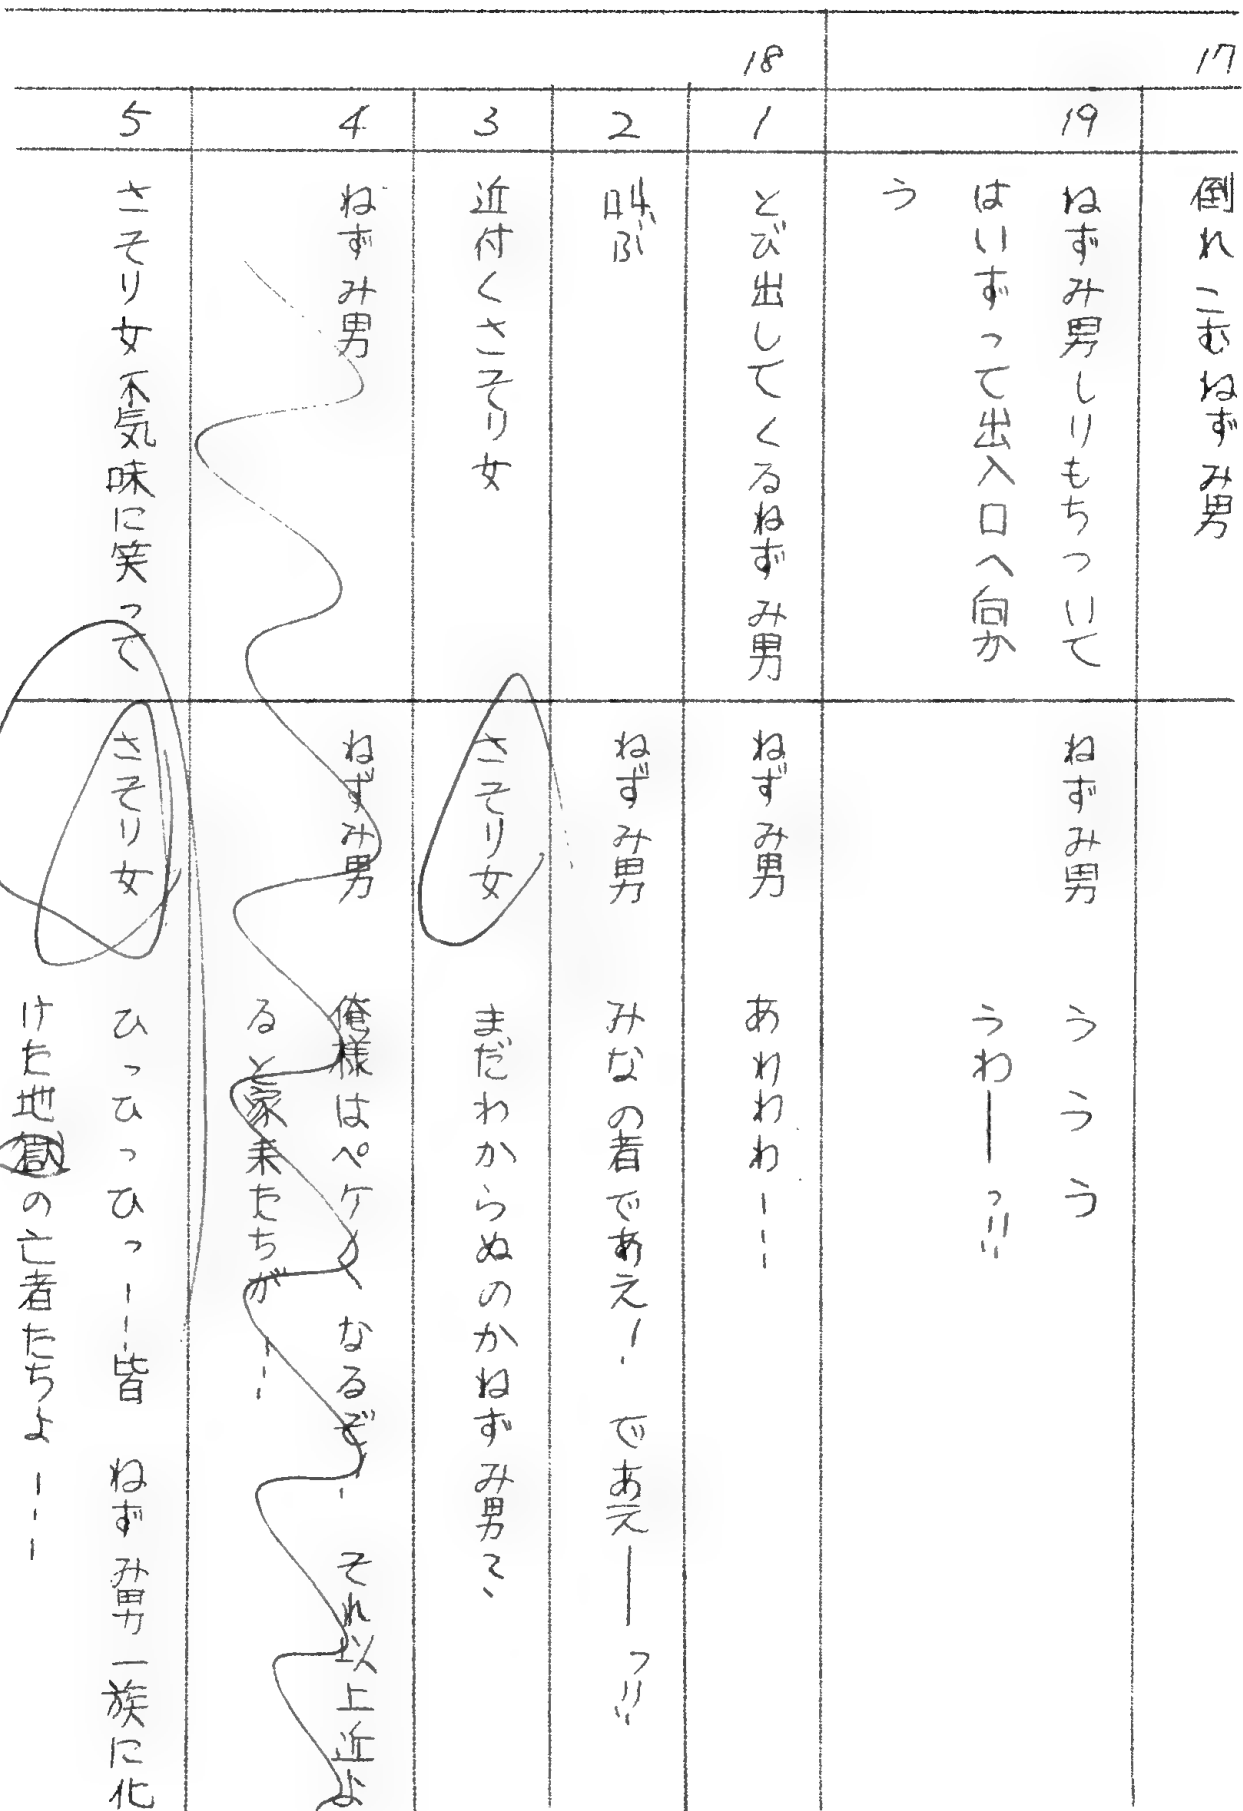 17
倒れこむねずみ男
19
ねずみ男しりもちついて
はいずって出入口へ向か
う
ねずみ男
ううう
うわ──っ!!
18
1
とび出してくるねずみ男
ねずみ男
あわわわ---
2
叫ぶ
ねずみ男
みなの者であえ! であえ──っ!!
3
近付くさそり女
さそり女
まだわからぬのかねずみ男?
4
ねずみ男
ねずみ男
俺様はペケペケなるぞ! それ以上近よ
ると家来たちが---
5
さそり女不気味に笑って
さそり女
ひっひっひっ---皆 ねずみ男一族に化
けた地獄の亡者たちよ---